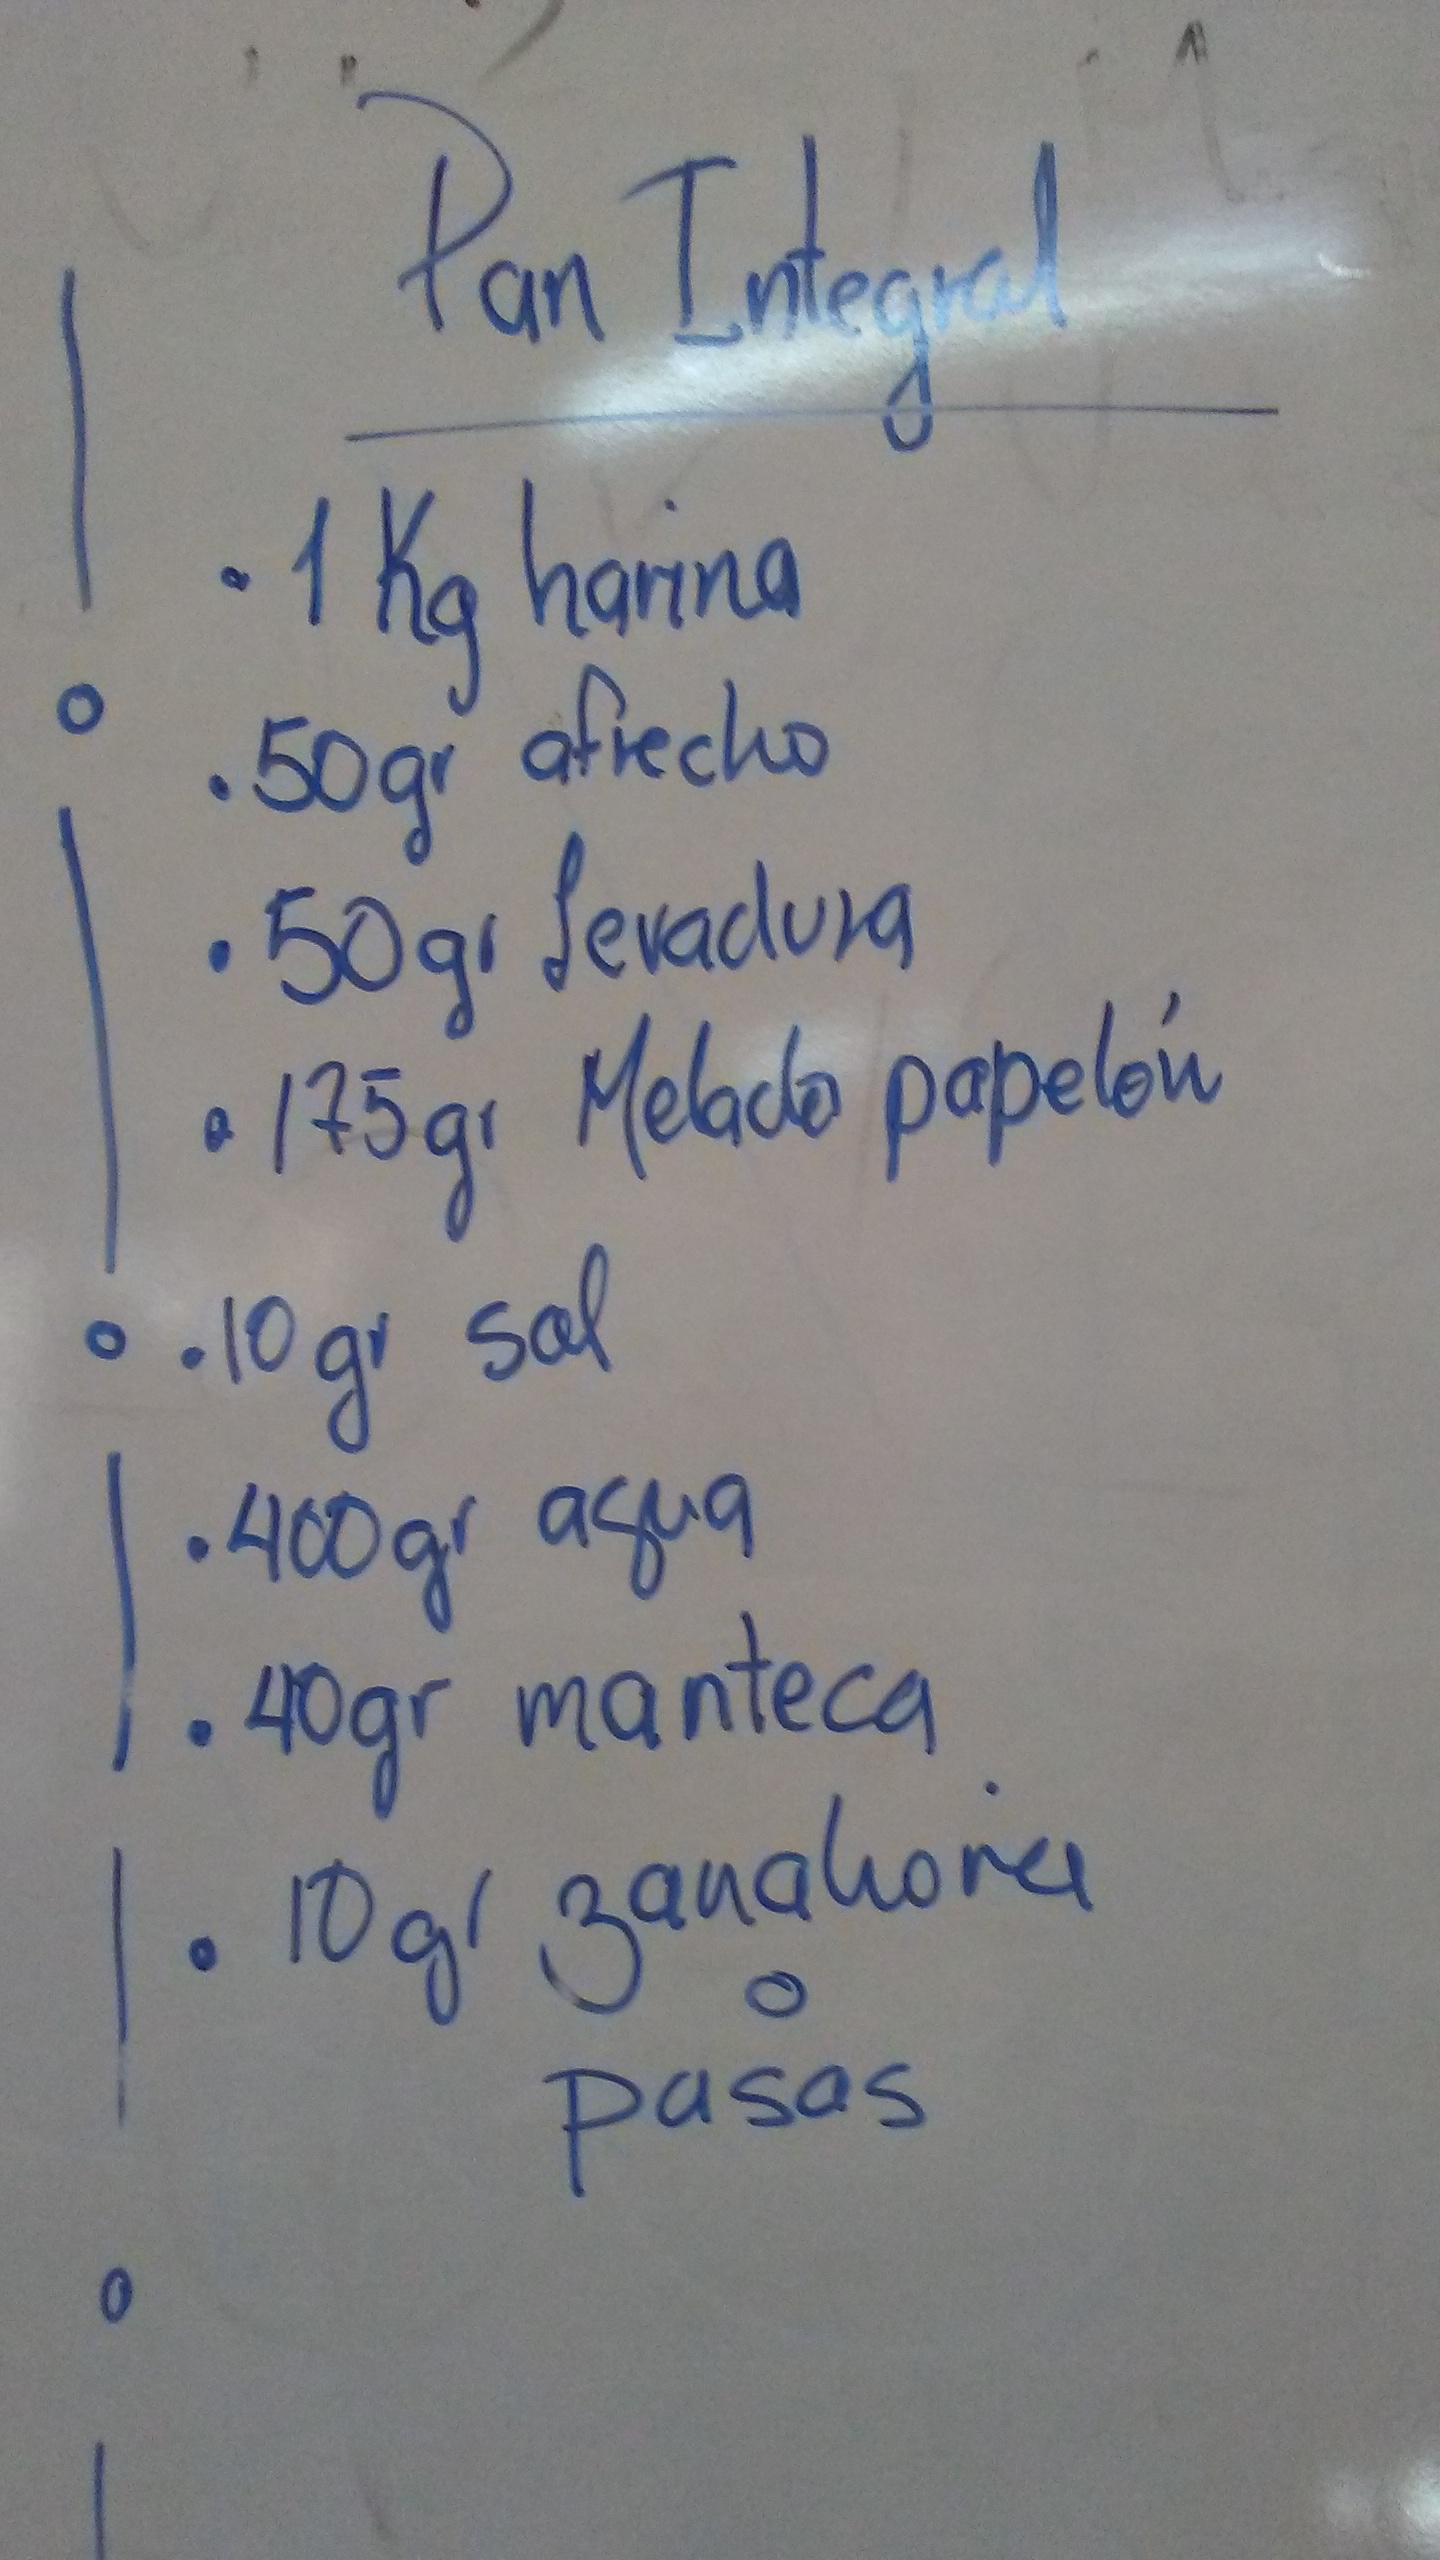 Pan Integral
. 1 Kg harina
. 50gr afrecho
. 50gr levadura
. 175gr Melado papelón
. 10gr sal
. 400gr agua
. 40gr manteca
. 10gr zanahoria
o
pasas